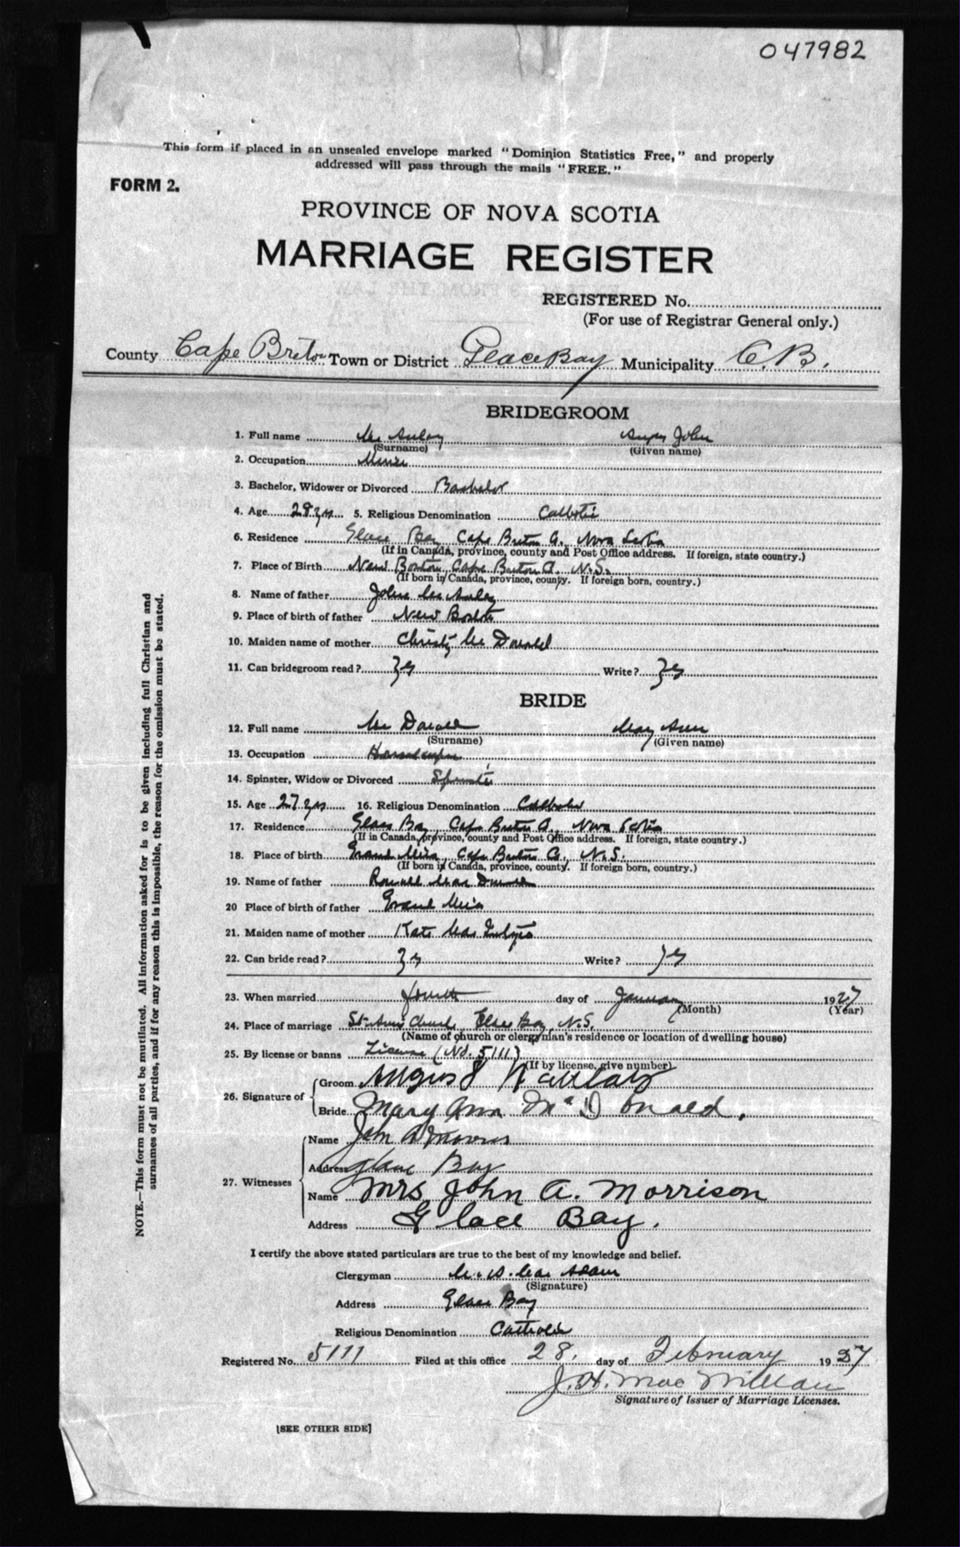 047982
This form if placed in an unsealed envelope marked "Dominion Statistics Free," and properly
addressed will pass through the mails "FREE."
FORM 2.
PROVINCE OF NOVA SCOTIA
MARRIAGE REGISTER
REGISTERED No.
(For use of Registrar General only.)
County Cape Breton Town or District Glace Bay Municipality C.B.
BRIDEGROOM
1. Full name Mc Aulay Angus John
(Surname) (Given name)
2. Occupation Miner
3. Bachelor, Widower or Divorced Bachelor
4. Age 28 yrs 5. Religious Denomination Catholic
6. Residence Glace Bay Cape Breton Co. Nova Scotia
(If in Canada, province, county and Post Office address. If foreign, state country.)
7. Place of Birth New Boston Cape Breton Co. N.S.
(If born in Canada, province, county. If foreign born, country.)
8. Name of father John Mc Aulay
9. Place of birth of father New Boston
10. Maiden name of mother Christy Mc Donald
11. Can bridegroom read? Yes Write? Yes
BRIDE
12. Full name Mc Donald Mary Ann
(Surname) (Given name)
13. Occupation Housekeeper
14. Spinster, Widow or Divorced Spinster
15. Age 27 yrs 16. Religious Denomination Catholic
17. Residence Glace Bay, Cape Breton Co., Nova Scotia
(If in Canada, province, county and Post Office address. If foreign, state country.)
18. Place of birth Grand Mira, Cape Breton Co., N.S.
(If born in Canada, province, county. If foreign born, country.)
19. Name of father Ronald Mac Donald
20 Place of birth of father Grand Mira
21. Maiden name of mother Kate Mac
22. Can bride read? Yes Write? Yes
23. When married fourth day of January 1927
(Month) (Year)
24. Place of marriage St. Anns Church Glace Bay, N.S.
(Name of church or clergyman's residence or location of dwelling house)
25. By license or banns License (No. 5111)
(If by license, give number)
26. Signature of Groom Angus J
Bride Mary Ann McDonald.
27. Witnesses Name John A Morrison
Address Glace Bay
Name Mrs. John A. Morrison
Address Glace Bay.
I certify the above stated particulars are true to the best of my knowledge and belief.
Clergyman Mac Adam
(Signature)
Address Glace Bay
Religious Denomination Catholic
Registered No. 5111 Filed at this office 28. day of February 1927
J.H. MacMillan
Signature of Issuer of Marriage Licenses.
[SEE OTHER SIDE]
NOTE.—This form must not be mutilated. All information asked for is to be given including full Christian and
surnames of all parties, and if for any reason this is impossible, the reason for the omission must be stated.